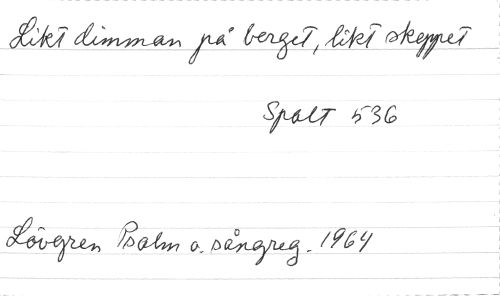 Likt dimman på berget, likt skeppet
Spalt 536
Lövgren Psalm o. sångreg. 1964